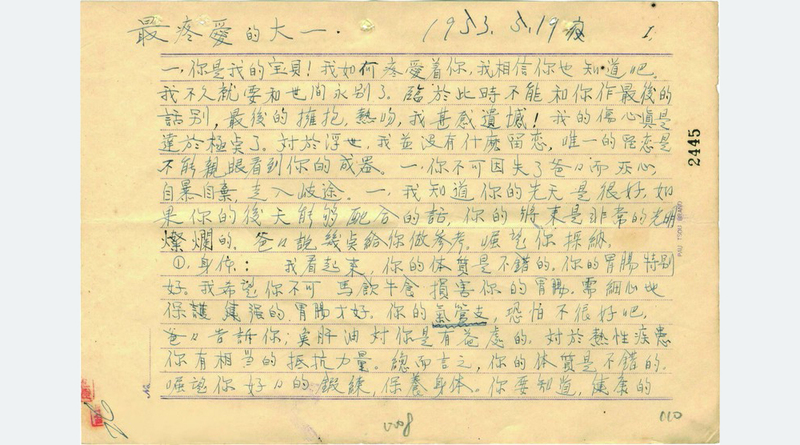 最疼愛的大一. 1953. 5.19夜 I.
一.你是我的宝貝!我如何疼愛着你,我相信你也知道吧。
我不久就要和世间永别了。臨於此時不能和你作最後的
話别,最後的擁抱,熱吻,我甚感遺憾!我的傷心眞是
達於極点了。対於浮世,我並没有什麽留恋,唯一的留恋是
不能親眼看到你的成器。一.你不可因失了爸々而灰心,
自暴自棄,走入歧途。一.我知道你的先天是很好,如
果你的後天能够配合的話,你的将来是非常的光明
燦爛的。爸々說幾点給你做參考。希望你採納。
①.身体: 我看起来,你的体質是不錯的。你的胃腸特别
好。我希望你不可馬飲牛食損害你的胃腸。需細心地
保護健强的胃腸才好。你的氣管支,恐怕不很好吧。
爸々告訴你;魚肝油対你是有益處的。対於熱性疾患
你有相当的抵抗力量。總而言之,你的体質是不錯的。
希望你好々的鍛錬,保養身体。你要知道,健康的
2445
No
008
010